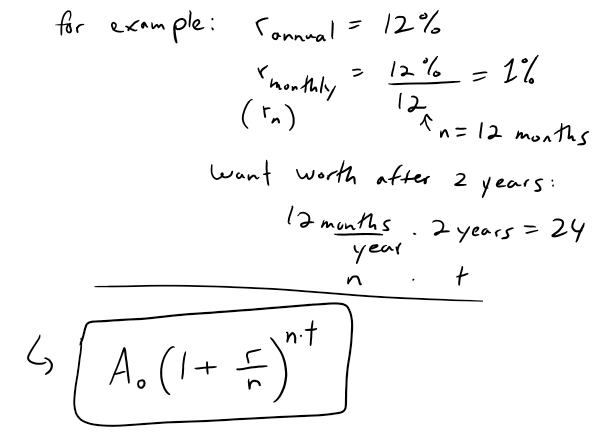 for example: r annual = 12%
r monthly = 12% / 12 = 1%
(rₙ)
↑ n = 12 months
want worth after 2 years:
12 months / year · 2 years = 24
n · t
↳ A₀ (1 + r/n)^(n·t)